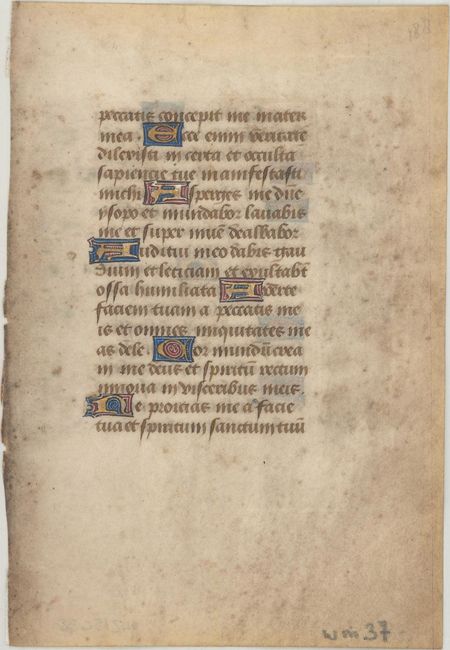 188
peccatis concepit me mater
mea. Ecce enim veritatē
dilexisti incerta et occulta
sapiencie tue manifestasti
michi Asperges me dnē
ysopo et mundabor lavabis
me et super nivē dealbabor
Auditui meo dabis gau
dium et leticiam et exultabt
ossa humiliata Averte
faciem tuam a peccatis me
is et omnes iniquitates me
as dele. Cor mundū crea
in me deus et spiritū rectum
innova in visceribus meis
Ne proicias me a facie
tua et spiritum sanctum tuū
wm. 37